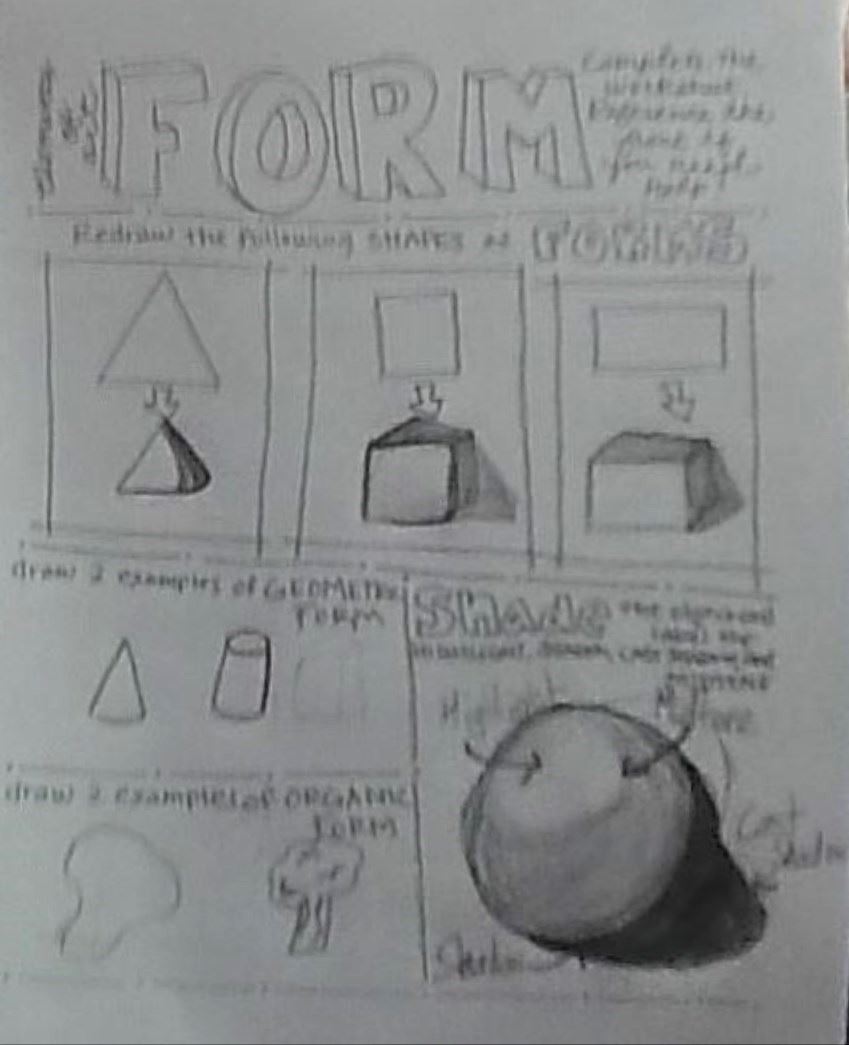 FORM
Complete the
worksheet
Reference the
front if
you need
help!
Redraw the following SHAPES as FORMS
draw 2 examples of GEOMETRIC
FORM
Shade the object and
label the
highlight, shadow, cast shadow, and
midtone
Highlight
Midtone
Cast
Shadow
draw 2 examples of ORGANIC
FORM
Shadow